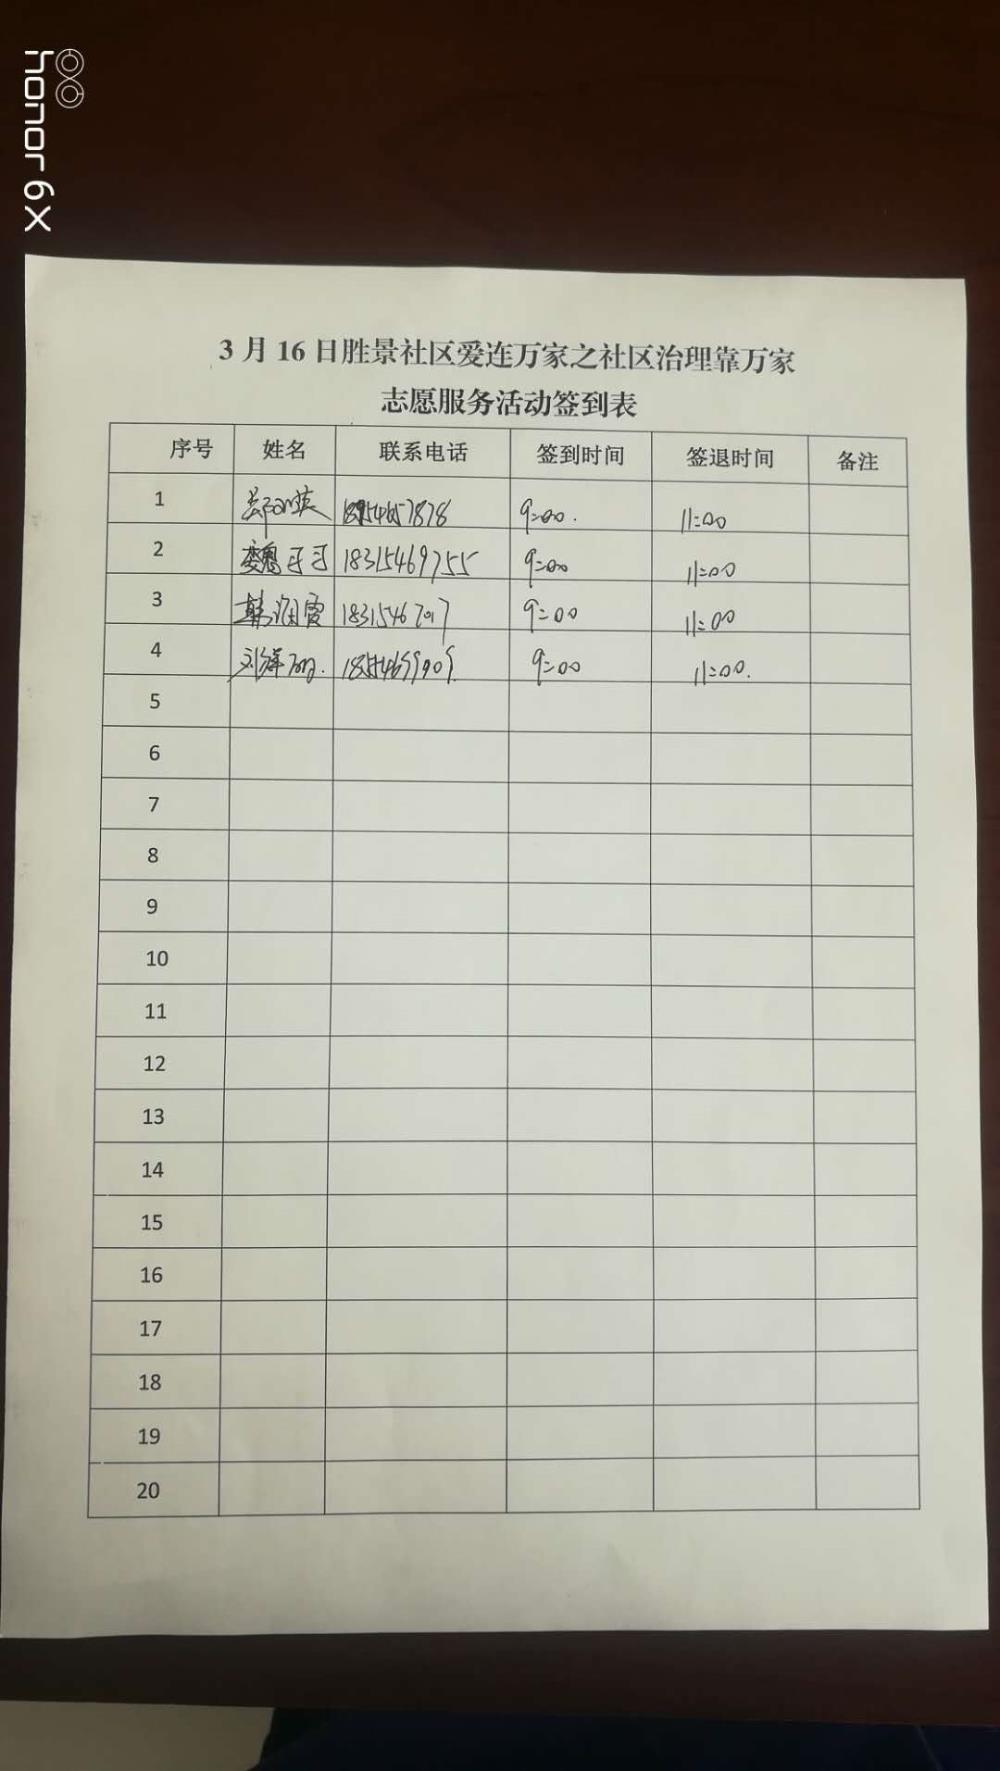 honor 6X
3月16日胜景社区爱连万家之社区治理靠万家
志愿服务活动签到表
序号 姓名 联系电话 签到时间 签退时间 备注
1 9:00. 11:00
2 魏可可 18315469755 9:00 11:00
3 韩润霞 18315467017 9:00 11:00
4 9:00 11:00.
5
6
7
8
9
10
11
12
13
14
15
16
17
18
19
20